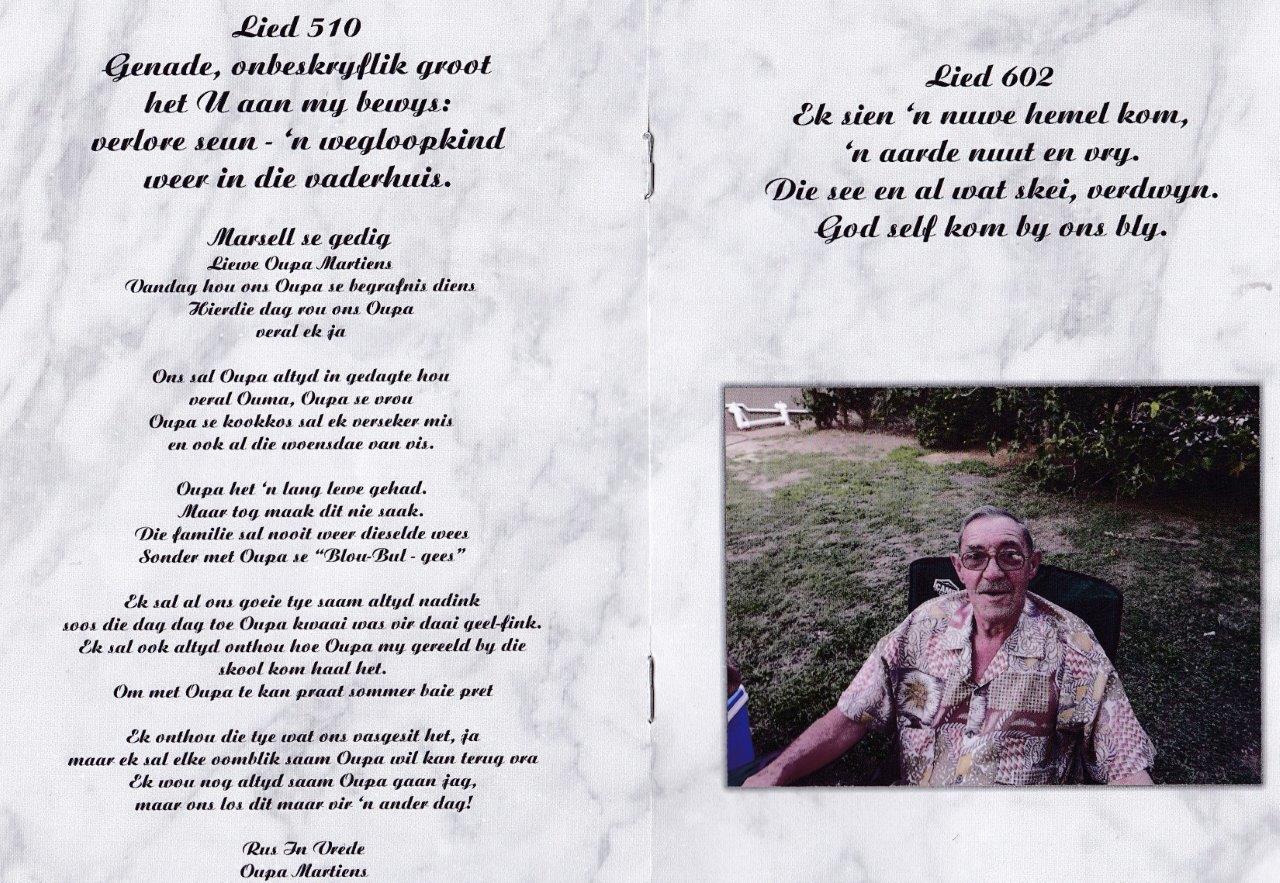 Lied 510
Genade, onbeskryflik groot
het U aan my bewys:
verlore seun - ‘n wegloopkind
weer in die vaderhuis.
Marsell se gedig
Liewe Oupa Martiens
Vandag hou ons Oupa se begrafnis diens
Hierdie dag rou ons Oupa
veral ek ja
Ons sal Oupa altyd in gedagte hou
veral Ouma, Oupa se vrou
Oupa se kookkos sal ek verseker mis
en ook al die woensdae van vis.
Oupa het ‘n lang lewe gehad.
Maar tog maak dit nie saak.
Die familie sal nooit weer dieselde wees
Sonder met Oupa se “Blou-Bul - gees”
Ek sal al ons goeie tye saam altyd nadink
soos die dag dag toe Oupa kwaai was vir daai geel-fink.
Ek sal ook altyd onthou hoe Oupa my gereeld by die
skool kom haal het.
Om met Oupa te kan praat sommer baie pret
Ek onthou die tye wat ons vasgesit het, ja
maar ek sal elke oomblik saam Oupa wil kan terug vra
Ek wou nog altyd saam Oupa gaan jag,
maar ons los dit maar vir ‘n ander dag!
Rus In Vrede
Oupa Martiens
Lied 602
Ek sien ‘n nuwe hemel kom,
‘n aarde nuut en vry.
Die see en al wat skei, verdwyn.
God self kom by ons bly.